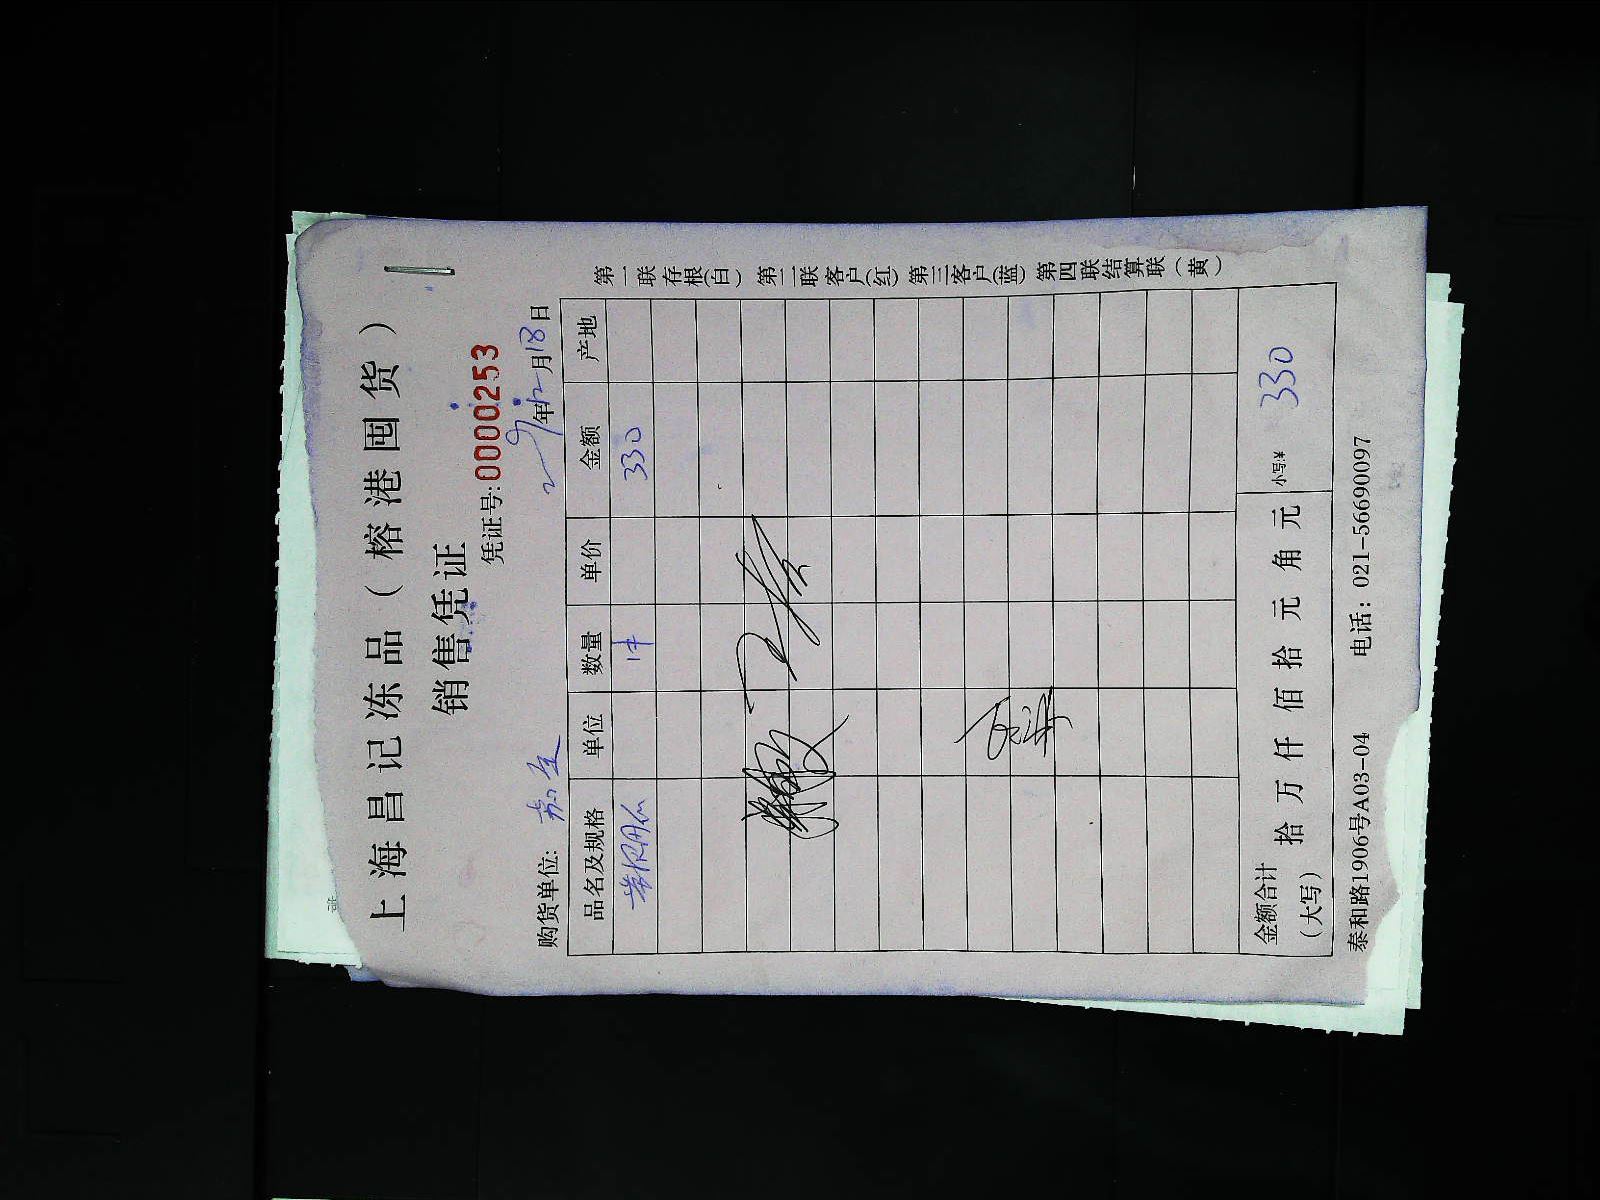 上海昌记冻品（榕港囤货）
销售凭证
凭证号:0000253
年12月18日
购货单位:
品名及规格 单位 数量 单价 金额 产地
1件 330
金额合计（大写） 拾 万 仟 佰 拾 元 角 元 小写:¥ 330
泰和路1906号A03-04 电话：021-56690097
第一联存根(白) 第二联客户(红) 第三客户(蓝) 第四联结算联（黄）